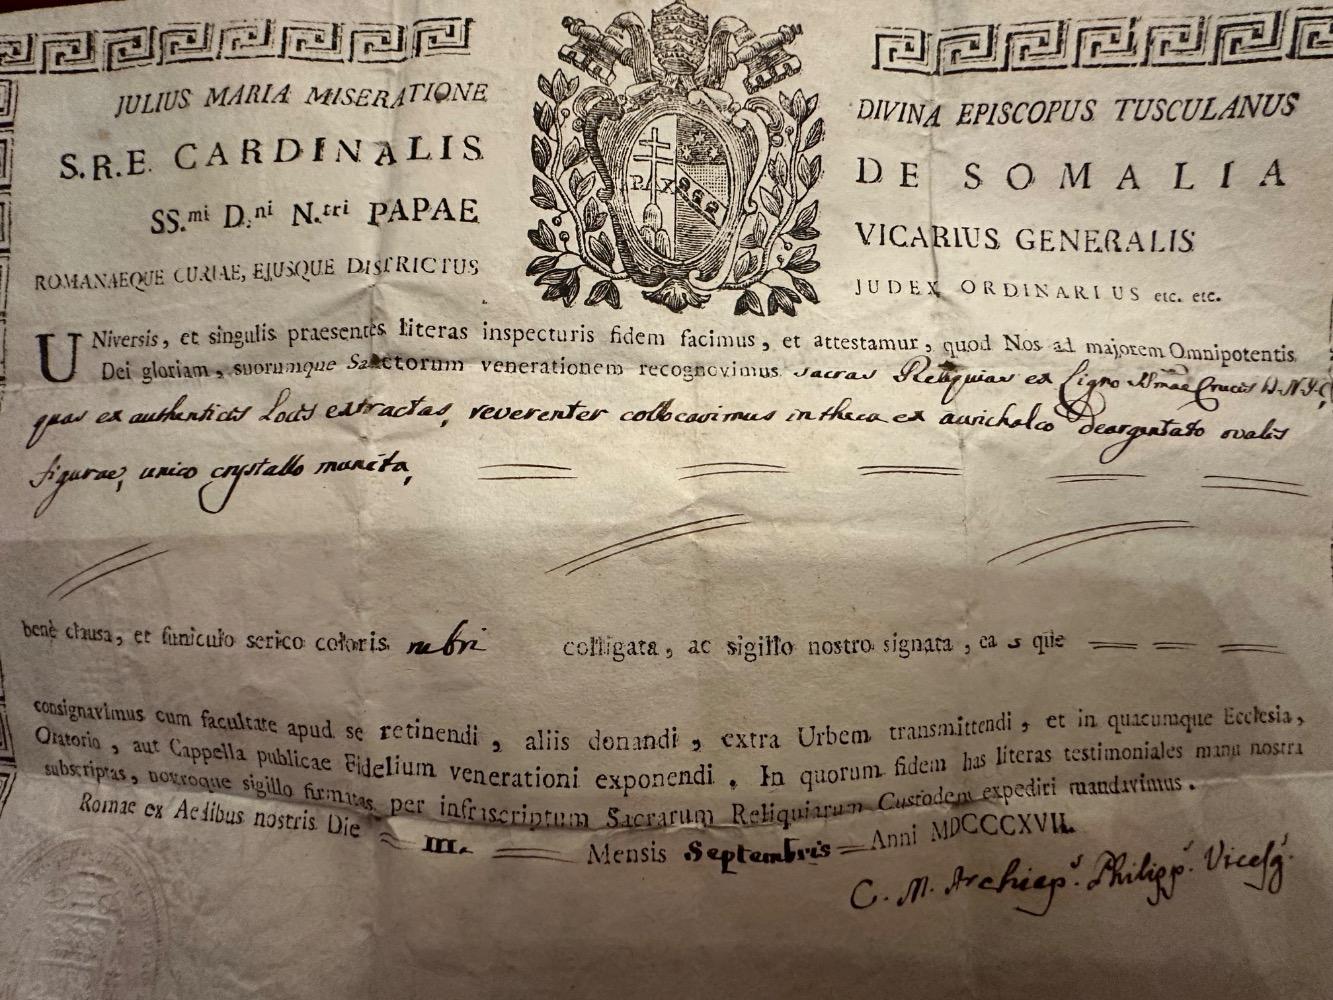 JULIUS MARIA MISERATIONE DIVINA EPISCOPUS TUSCULANUS
S.R.E. CARDINALIS DE SOMALIA
SS.mi D.ni N.tri PAPAE VICARIUS GENERALIS
ROMANAEQUE CURIAE, EJUSQUE DISTRICTUS JUDEX ORDINARIUS etc. etc.
PAX
UNiversis, et singulis praesentes literas inspecturis fidem facimus, et attestamur, quod Nos ad majorem Omnipotentis
Dei gloriam, suorumque Sanctorum venerationem recognovimus sacras Reliquias ex Ligno SSmae Crucis D.N.J.C.
quas ex authenticis Locis extractas, reverenter collocavimus in theca ex aurichalco deargentato ovalis
figurae, unico crystallo munita,
benè clausa, et funiculo serico coloris rubri colligata, ac sigillo nostro signata, eas que
consignavimus cum facultate apud se retinendi, aliis donandi, extra Urbem transmittendi, et in quacumque Ecclesia,
Oratorio, aut Cappella publicae Fidelium venerationi exponendi. In quorum fidem has literas testimoniales manu nostra
subscriptas, nostroque sigillo firmatas per infrascriptum Sacrarum Reliquiarum Custodem expediri mandavimus.
Romae ex Aedibus nostris Die III. Mensis Septembris Anni MDCCCXVII.
C. M. Archiep.s Philipp.s Vicesg.s